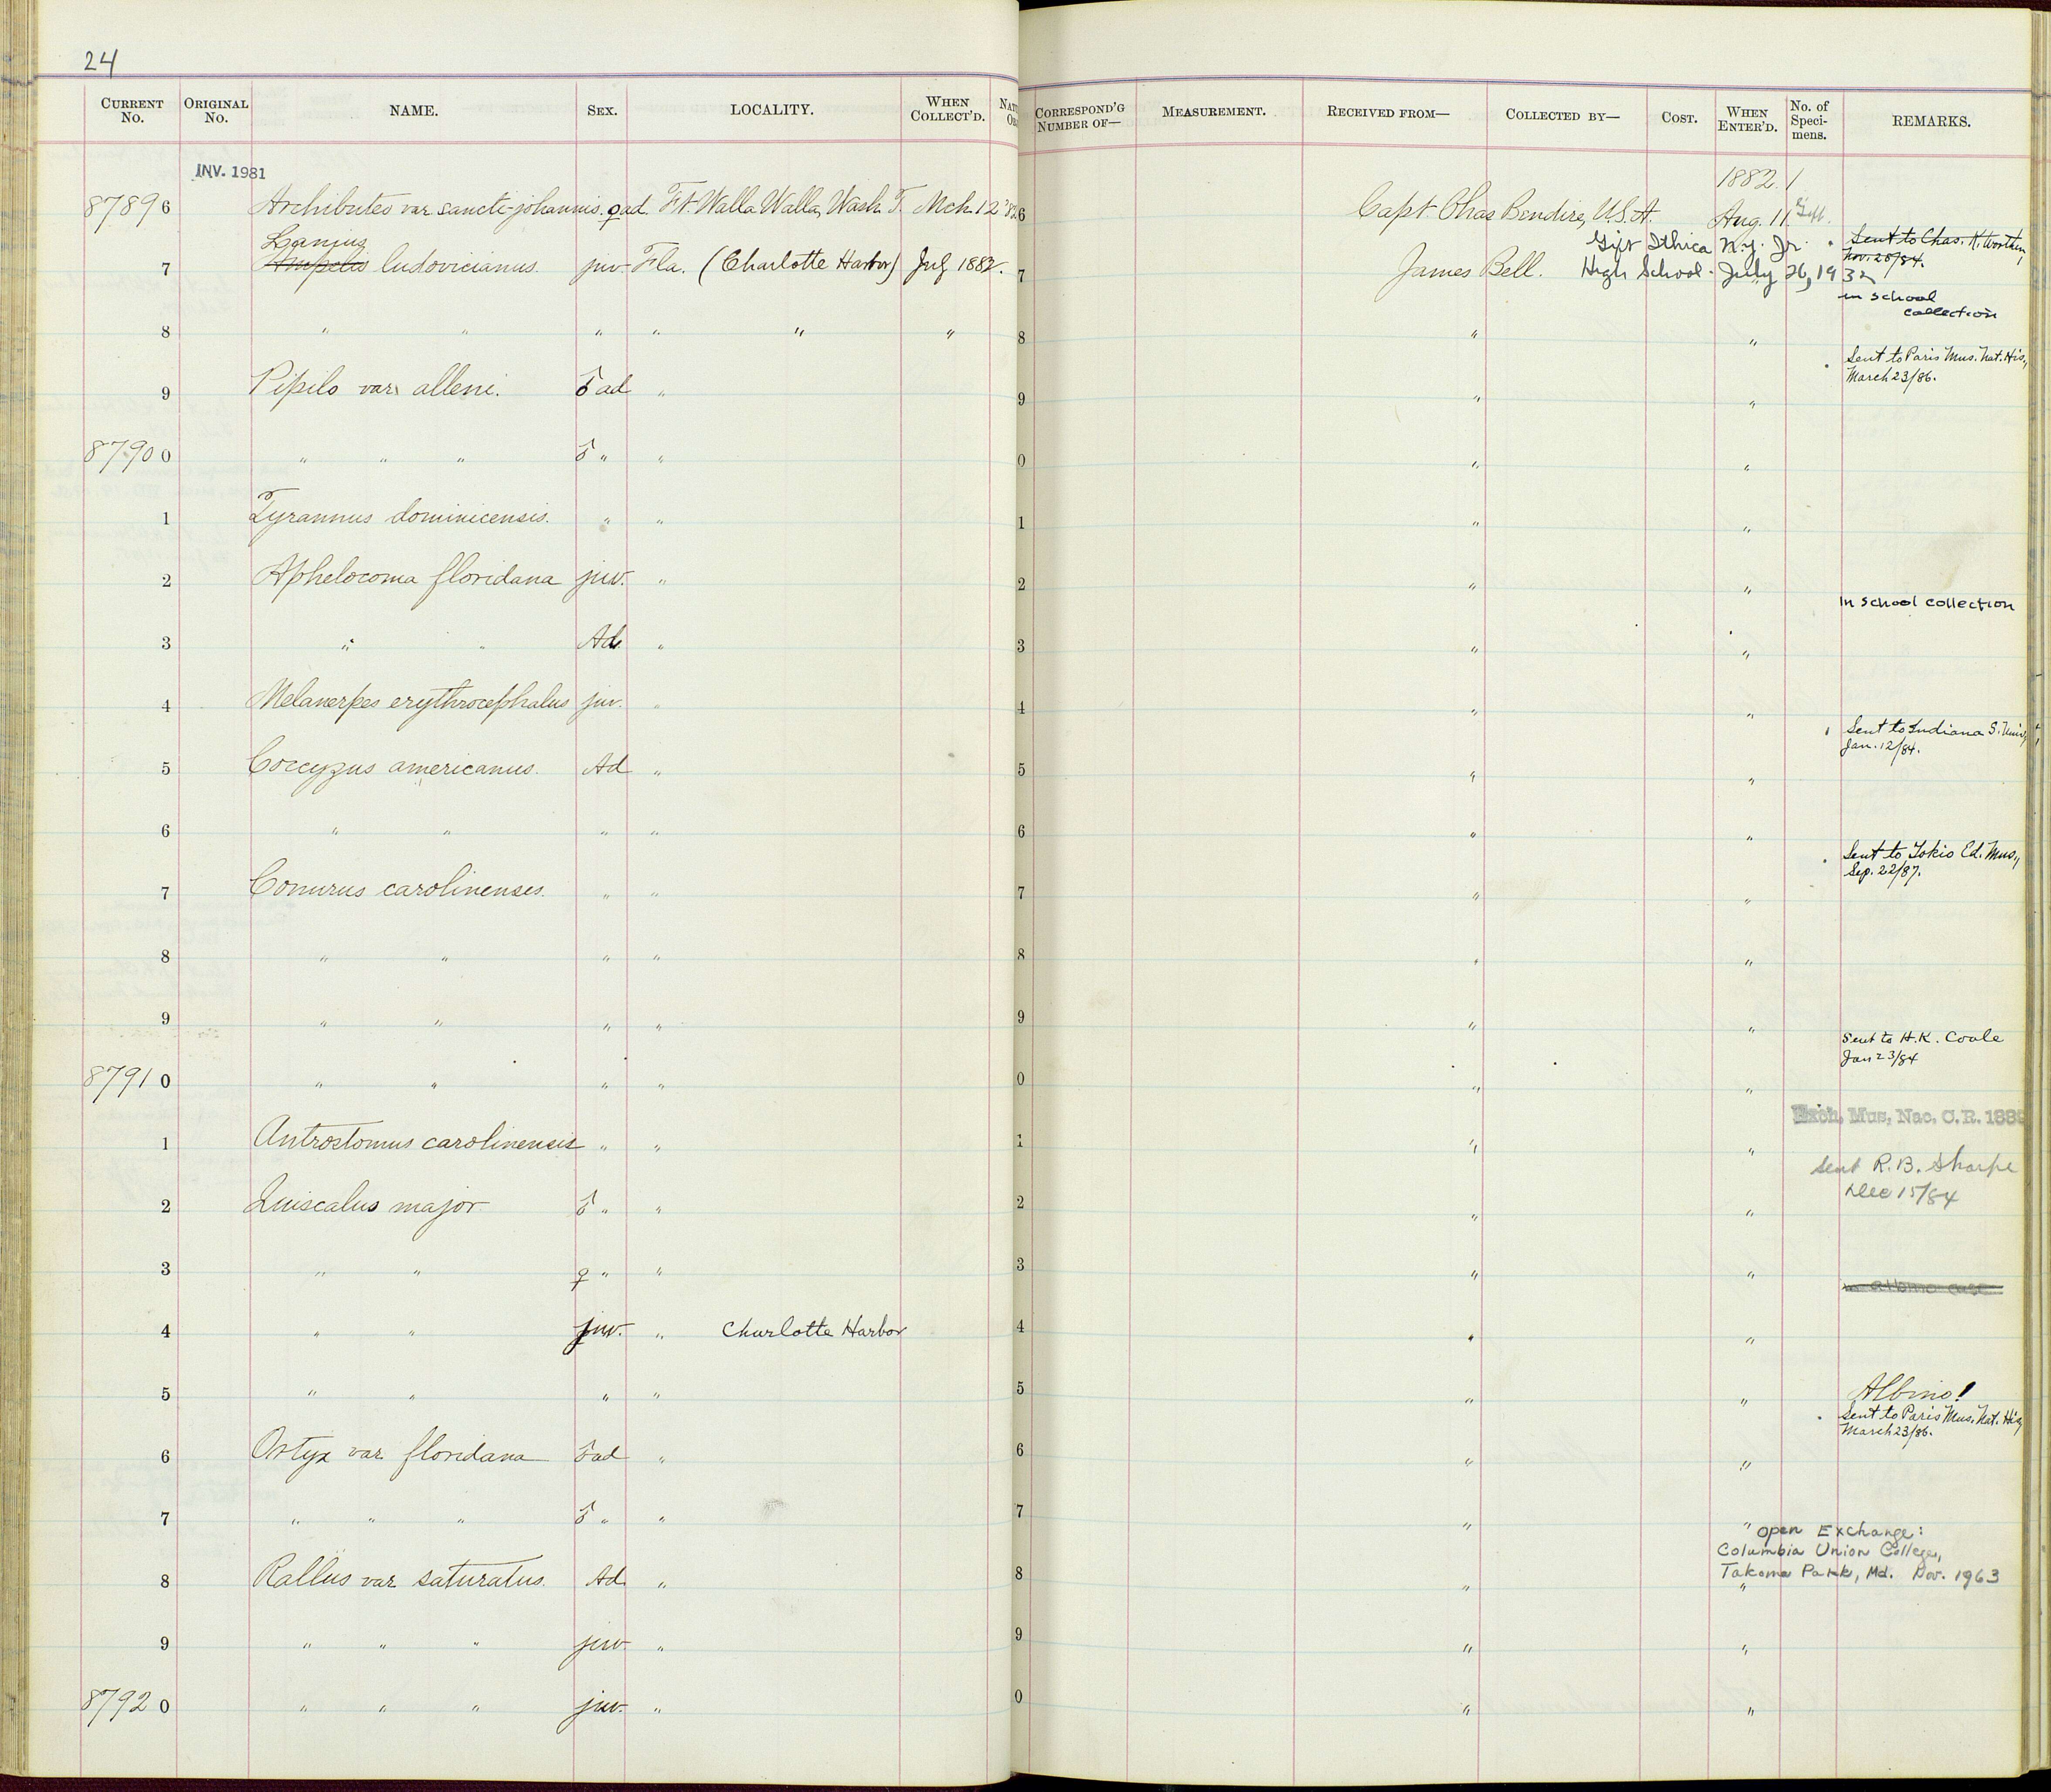 24
CURRENT No. ORIGINAL No. NAME. SEX. LOCALITY. WHEN COLLECT'D. CORRESPOND'G NUMBER OF— MEASUREMENT. RECEIVED FROM— COLLECTED BY— COST. WHEN ENTER'D. No. of Speci-mens. REMARKS.
INV. 1981
1882.
87896 Archibuteo var sancti-johannis. ♀ ad. Ft. Walla Walla, Wash. T. Mch. 12 '82 6 Capt. Chas Bendire, U.S.A. Aug. 11
Lanius Gift Ithica N.Y. Jr. Sent to Chas. K. Worthen,
7 Ampelis ludovicianus. juv. Fla. (Charlotte Harbor) July 1882. 7 James Bell. High School. July 26, 1932 Nov. 28/84.
in school
collection
8 " " " " " " 8 " "
Sent to Paris Mus. Nat. His.,
March 23/86.
9 Pipilo var. alleni. ♂ ad " 9 " "
87900 " " " ♂ " " 0 " "
1 Tyrannus dominicensis. " " 1 " "
2 Aphelocoma floridana juv. " 2 " "
In school collection
3 " " Ad. " 3 " "
4 Melanerpes erythrocephalus juv. " 4 " "
Sent to Indiana S. Univ.,
Jan. 12/84.
5 Coccyzus americanus. Ad " 5 " "
6 " " " " 6 " "
Sent to Tokio Ed. Mus.,
Sep. 22/87.
7 Conurus carolinenses. " " 7 " "
8 " " " " 8 " "
9 " " " " 9 " "
Sent to H.K. Coale
Jan 23/84
87910 " " " " 0 " "
Exch. Mus. Nac. C.R. 188
1 Antrostomus carolinensis " " 1 " "
Sent R.B. Sharpe
Dec 15/84
2 Quiscalus major ♂ " " 2 " "
3 " " ♀ " " 3 " "
4 " " juv. " Charlotte Harbor 4 " "
5 " " " " 5 " " Albino!
Sent to Paris Mus. Nat. His,
March 23/86.
6 Ortyx var. floridana ♂ ad " 6 " "
7 " " " ♂ " " 7 " "
Open Exchange:
Columbia Union College,
Takoma Park, Md. Nov. 1963
8 Rallus var saturatus. Ad. " 8 " "
9 " " " juv " 9 " "
87920 " " " juv. " 0 " "